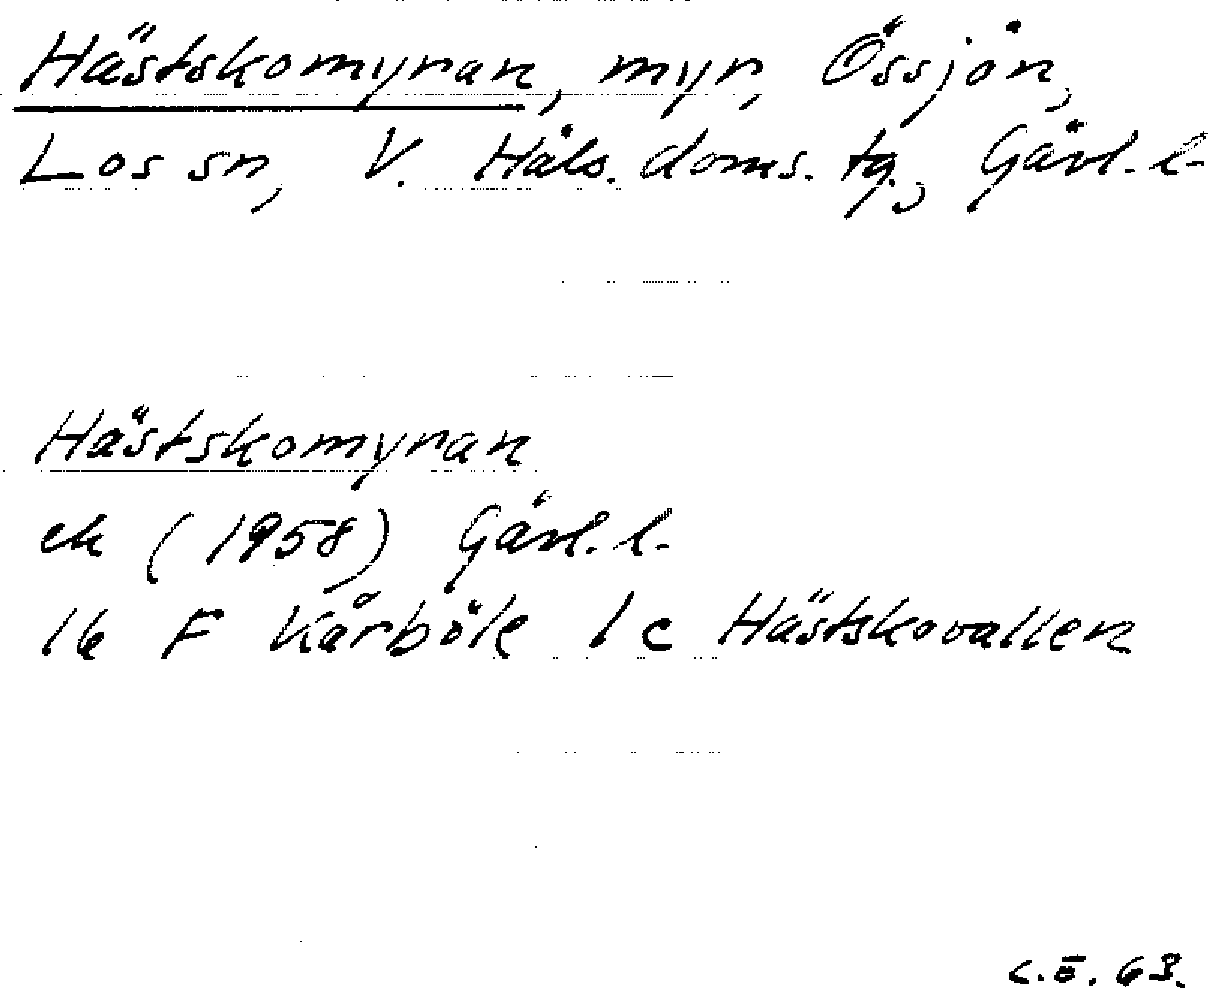 Hästskomyran, myr, Össjön,
Los sn, V. Häls. doms. tg., Gävl. l.
Hästskomyran
ek (1958) Gävl. l.
16 F Kårböle 1 c Hästskovallen
C.E. 63.